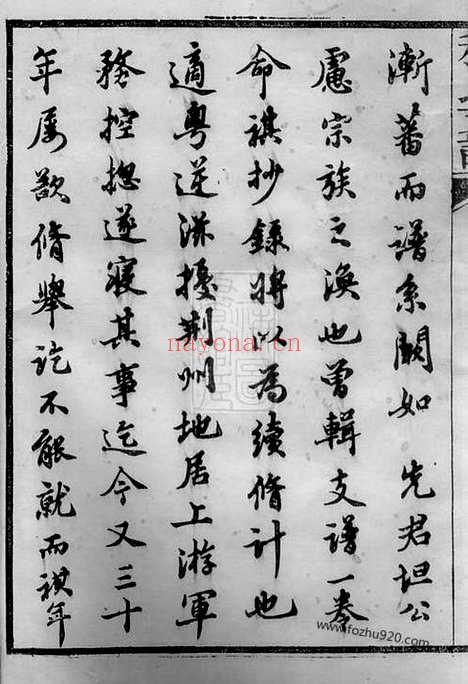 漸蕃而譜系闕如 先君坦公
慮宗族之渙也曾輯支譜一卷
命祺抄錄將以為續脩計也
適粵逆滋擾荆州地居上游軍
務控揔遂寢其事迄今又三十
年屢欲脩舉訖不能就而祺年
nayona.cn
www.fozhu920.com